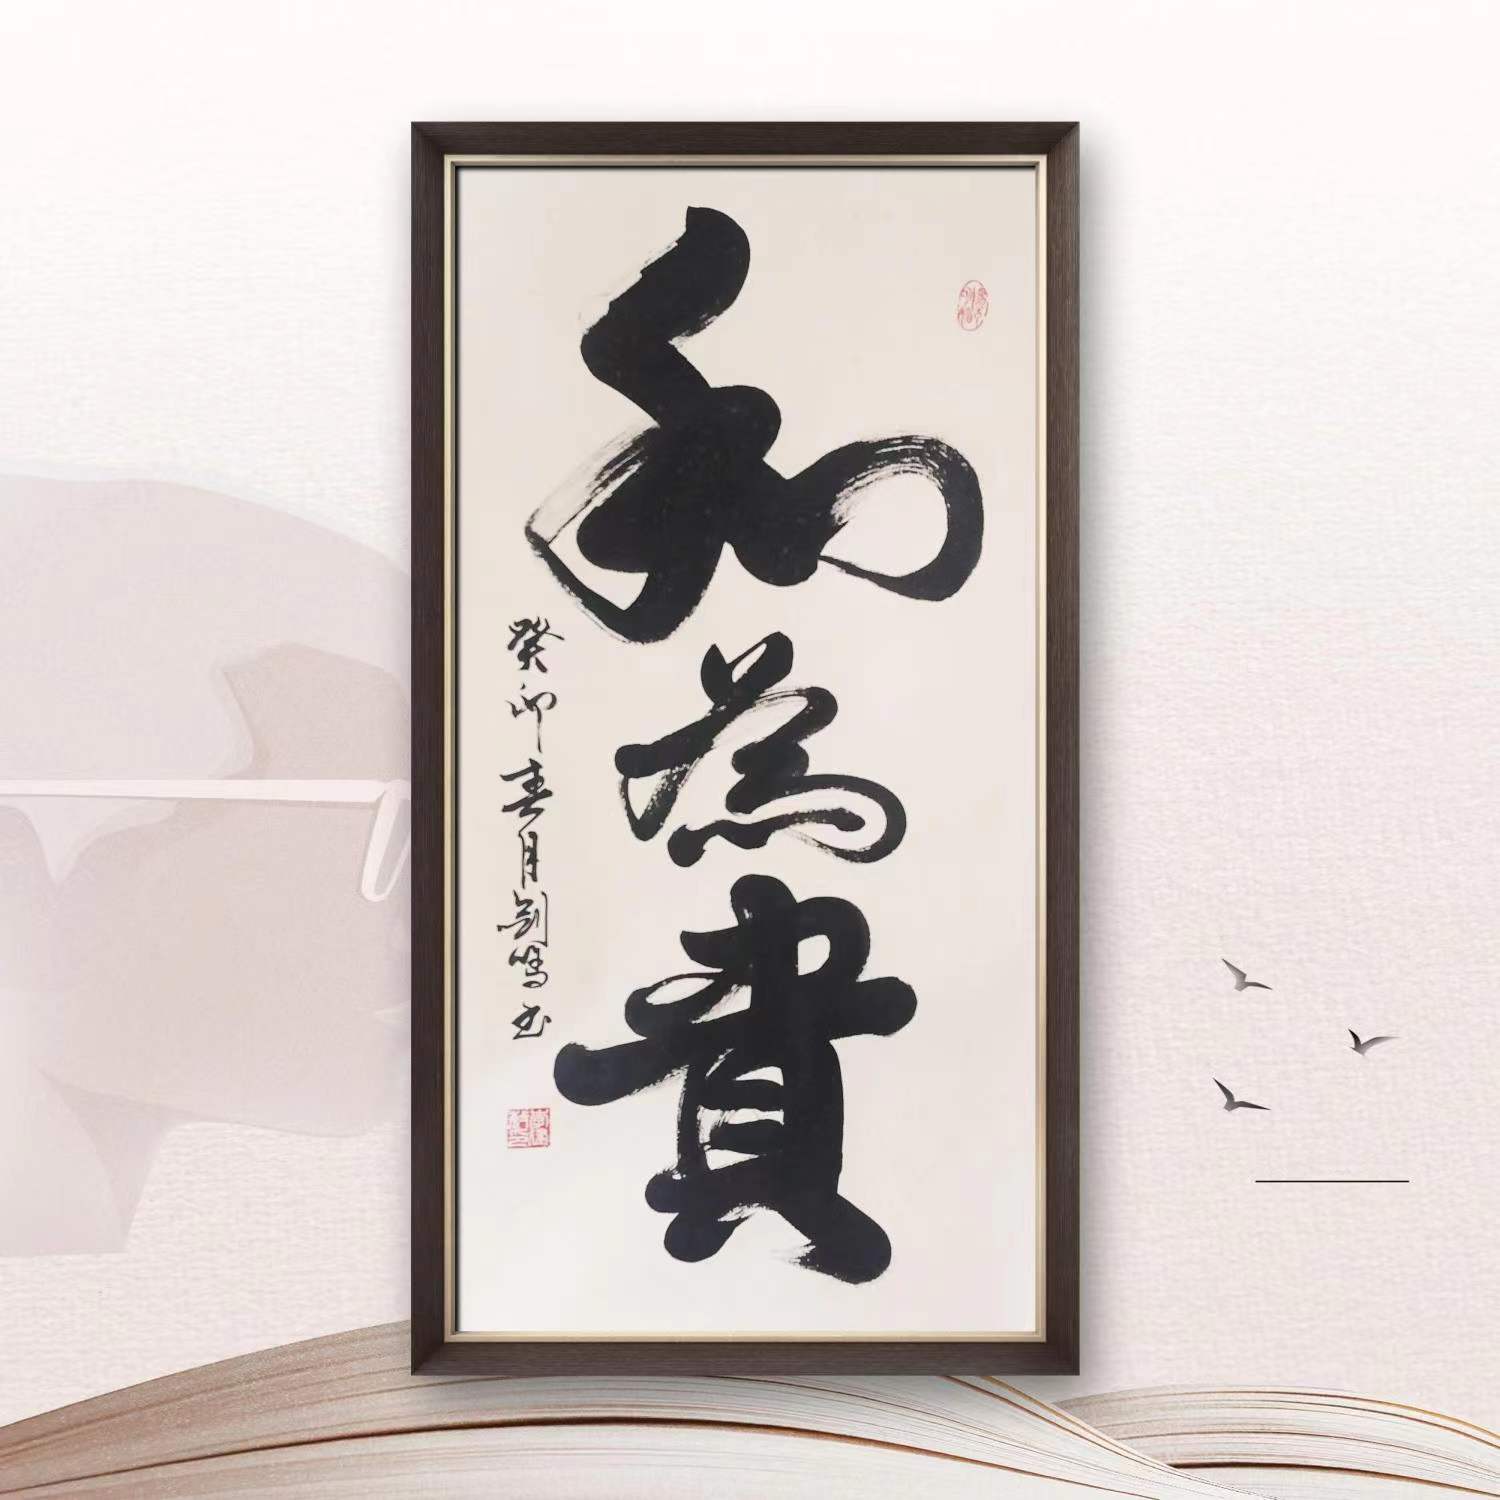 和為貴
癸卯春月劉鳴书